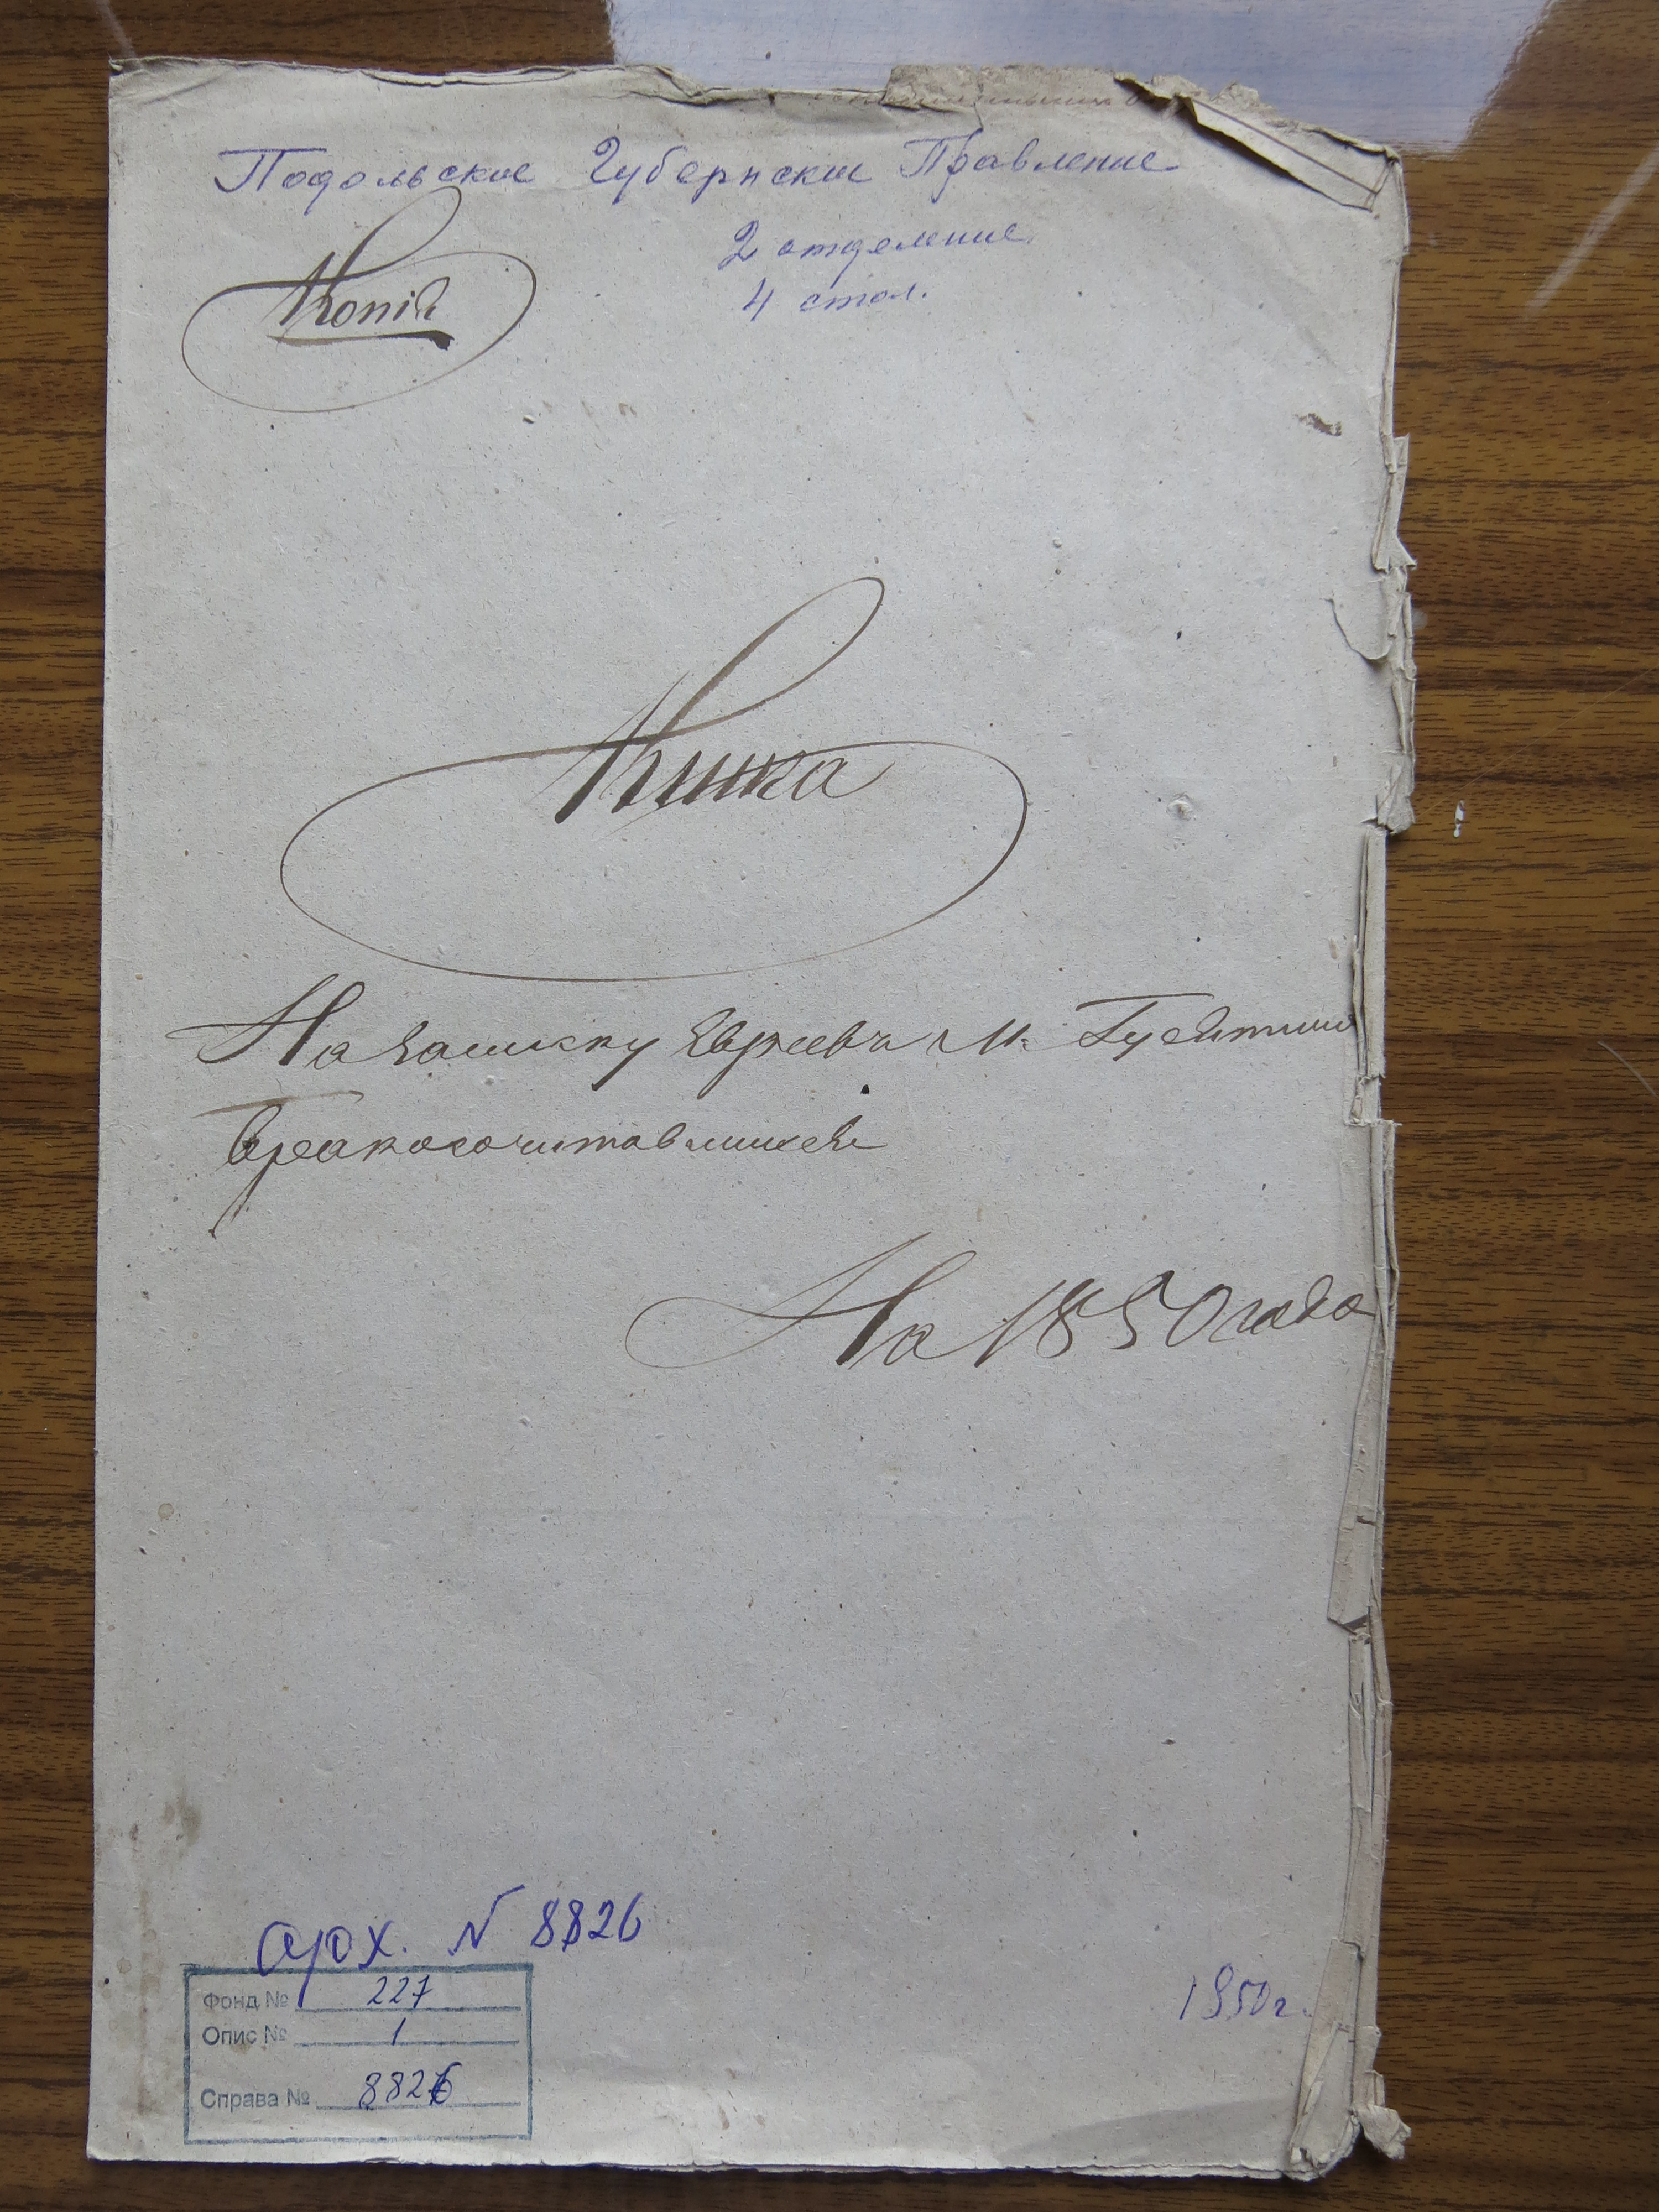 Подольское Губернское Правление
2 отделение
4 стол.
Копія
Книга
На записку Евреевъ м.
Бракосочитавшихся
На 1850 года
арх. N 8826
1850 г.
Фонд № 227
Опис № 1
Справа № 8826